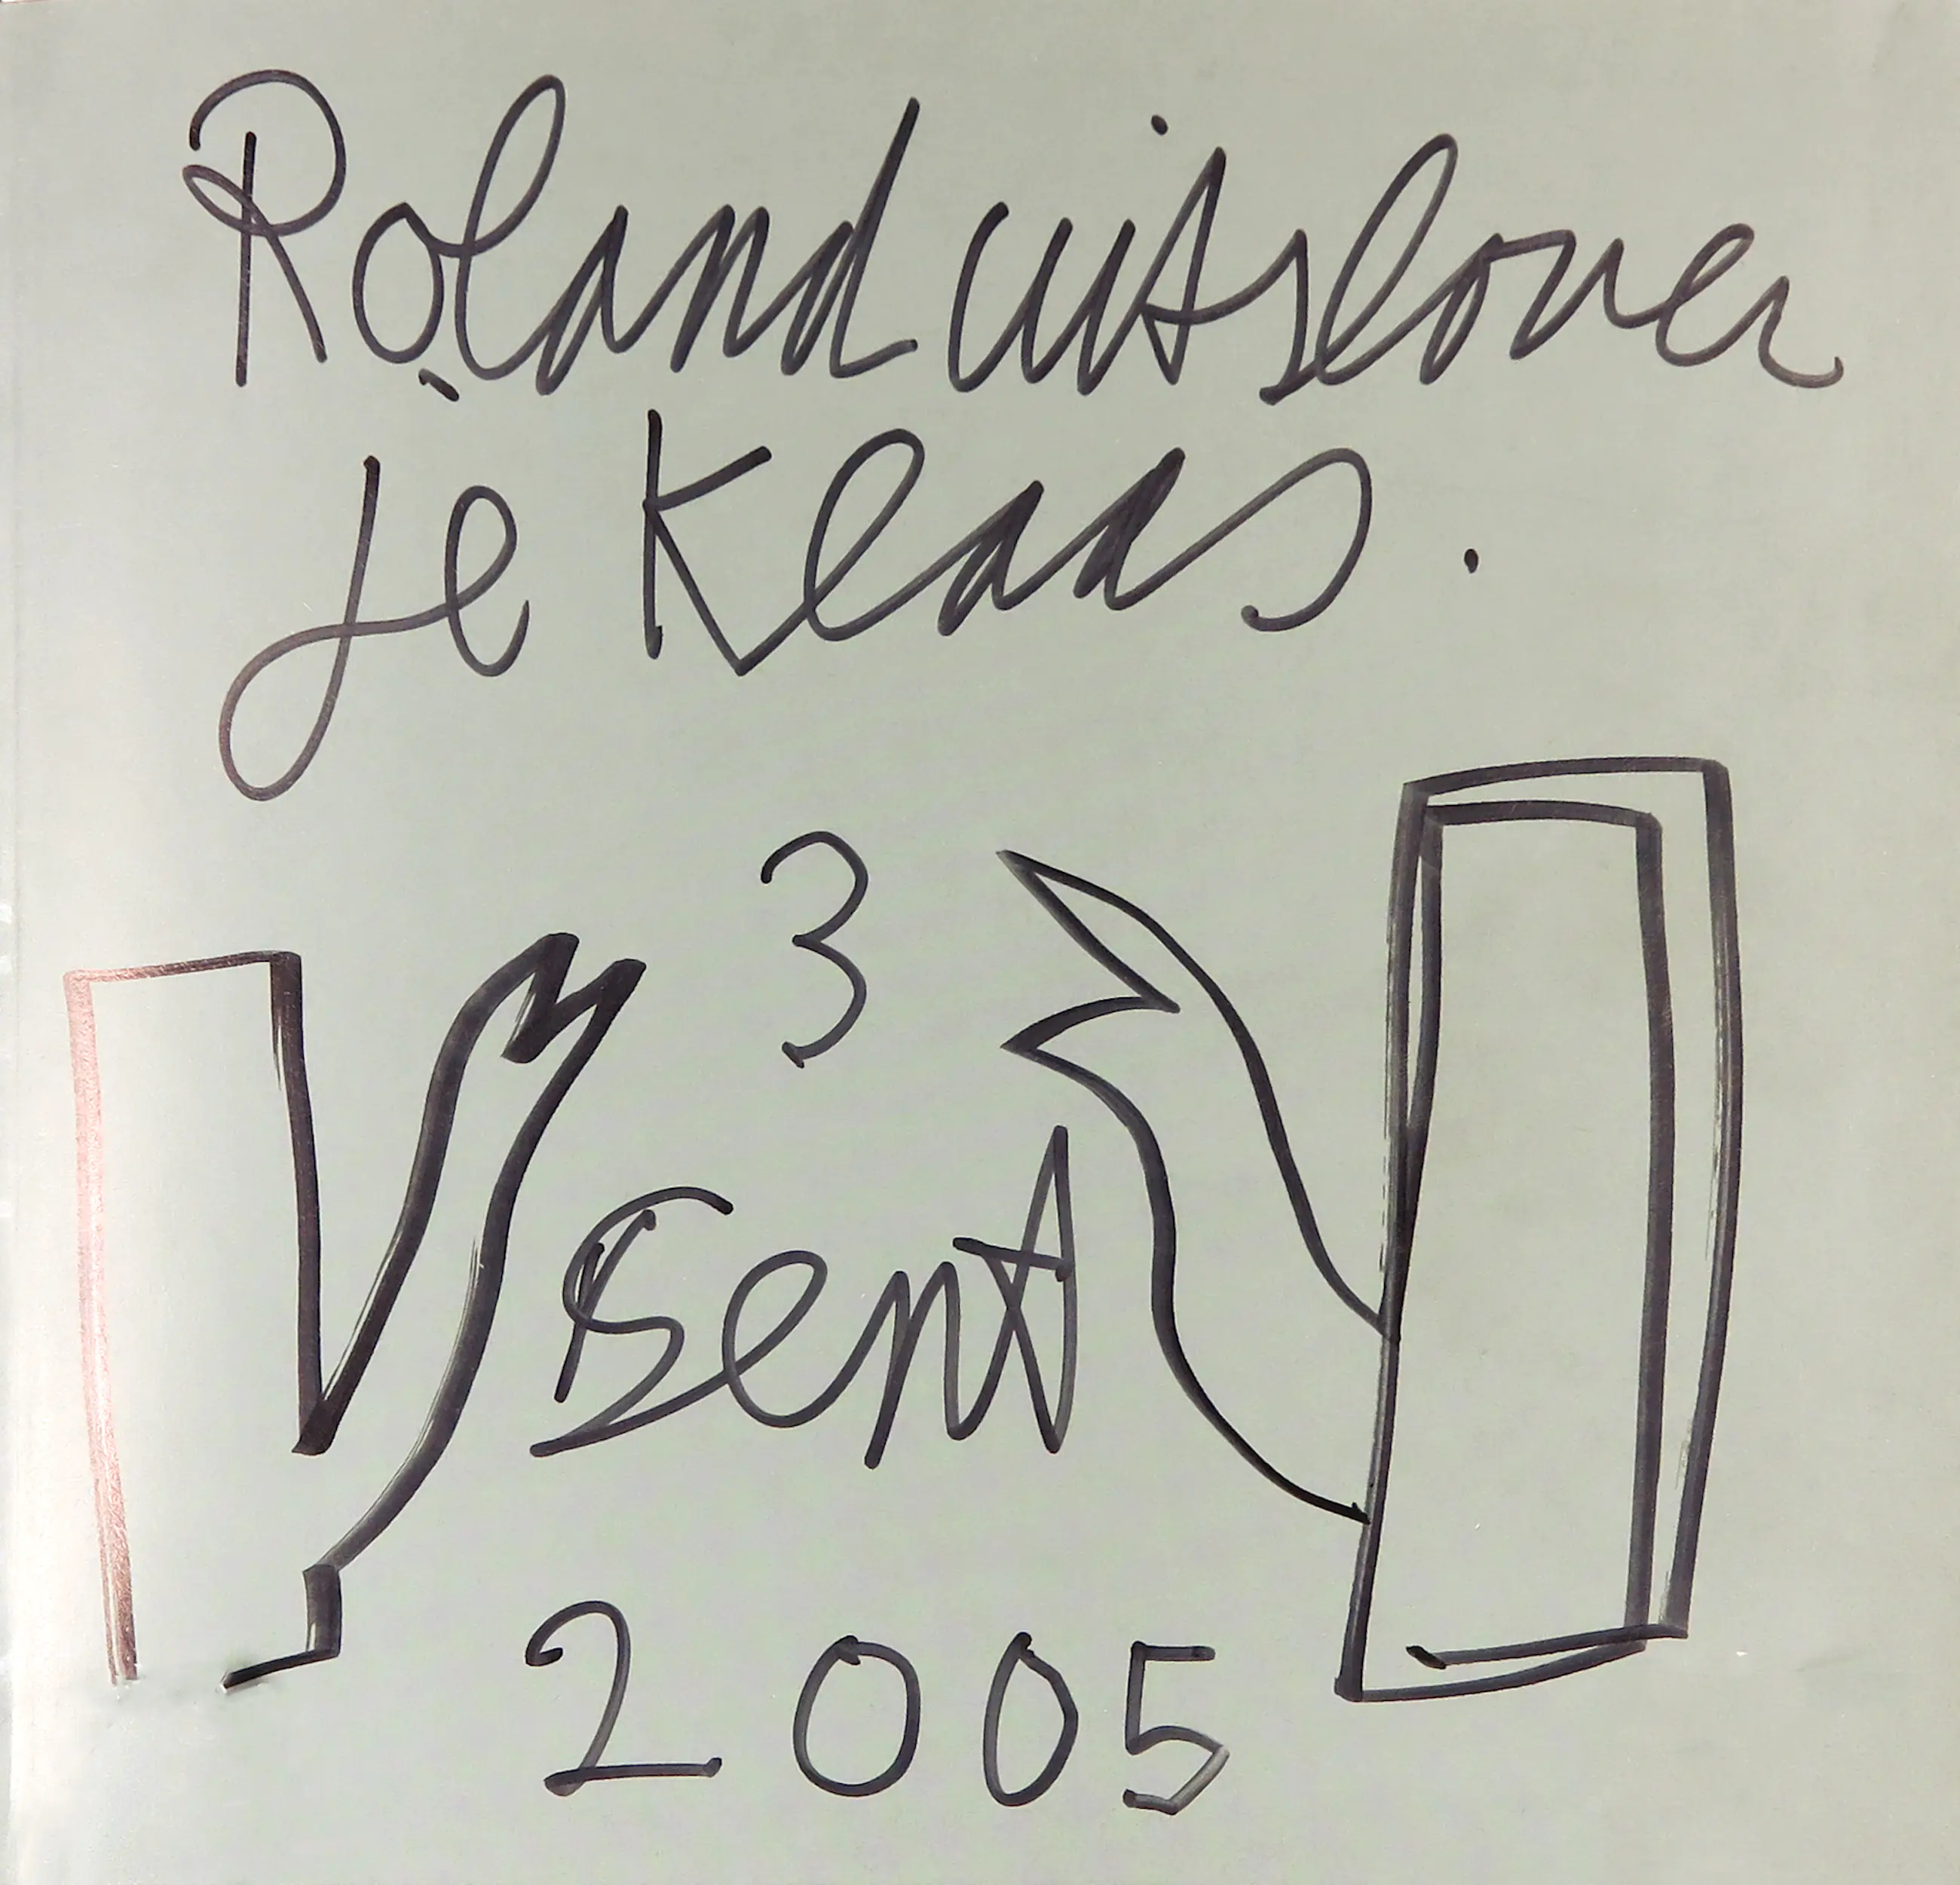 Roland uitslover
je Klaas.
3
sent
2005